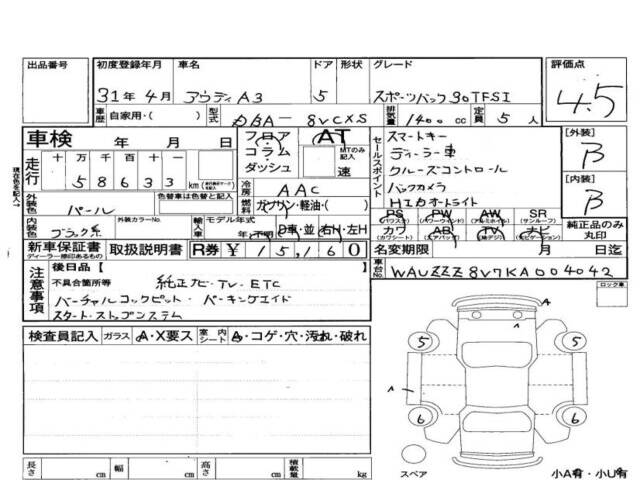 出品番号 初度登録年月 車名 ドア 形状 グレード 評価点
31年4月 アウディA3 5 スポーツバック30TFSI 4.5
車歴 自家用・( ) 型式 DBA- 8VCXS 排気量 1400 cc 定員 5 人
車検 年 月 日 フロア コラム・ ダッシュ (AT) MTのみ記入 速
走行 十 万 千 百 十 一
58633 km
冷房 AAC
燃料 ガソリン・軽油・( )
セールスポイント
スマートキー
ディーラー車
クルーズコントロール
バックカメラ
HIDオートライト
[外装] B
[内装] B
外装色 パール 色替車は色替と記入
内装色 ブラック系 外装カラーNo. 輸入車 モデル年式 D車・並 右H・左H
年(不明)
PS (パワステ) PW (パワーウインド) AW (アルミホイル) SR (サンルーフ)
カワ (カワシート) AB TV ナビ
純正品のみ丸印
新車保証書 ディーラー捺印あるもの 取扱説明書 R券 ¥ 15,160 名変期限 月 日
現在色を記入→
注意事項
後日品[ ]
不具合箇所等 純正ナビ・TV・ETC
バーチャルコックピット・パーキングエイド
スタート・ストップシステム
車台No. WAUZZZ8V7KA004042
ロック車
検査員記入 ガラス A・X要ス 室内シート A・コゲ・穴・汚れ・破れ
A
A
5 5
A
6 6
スペア 小A有・小U有
長さ cm 幅 cm 高さ cm 積載量 kg